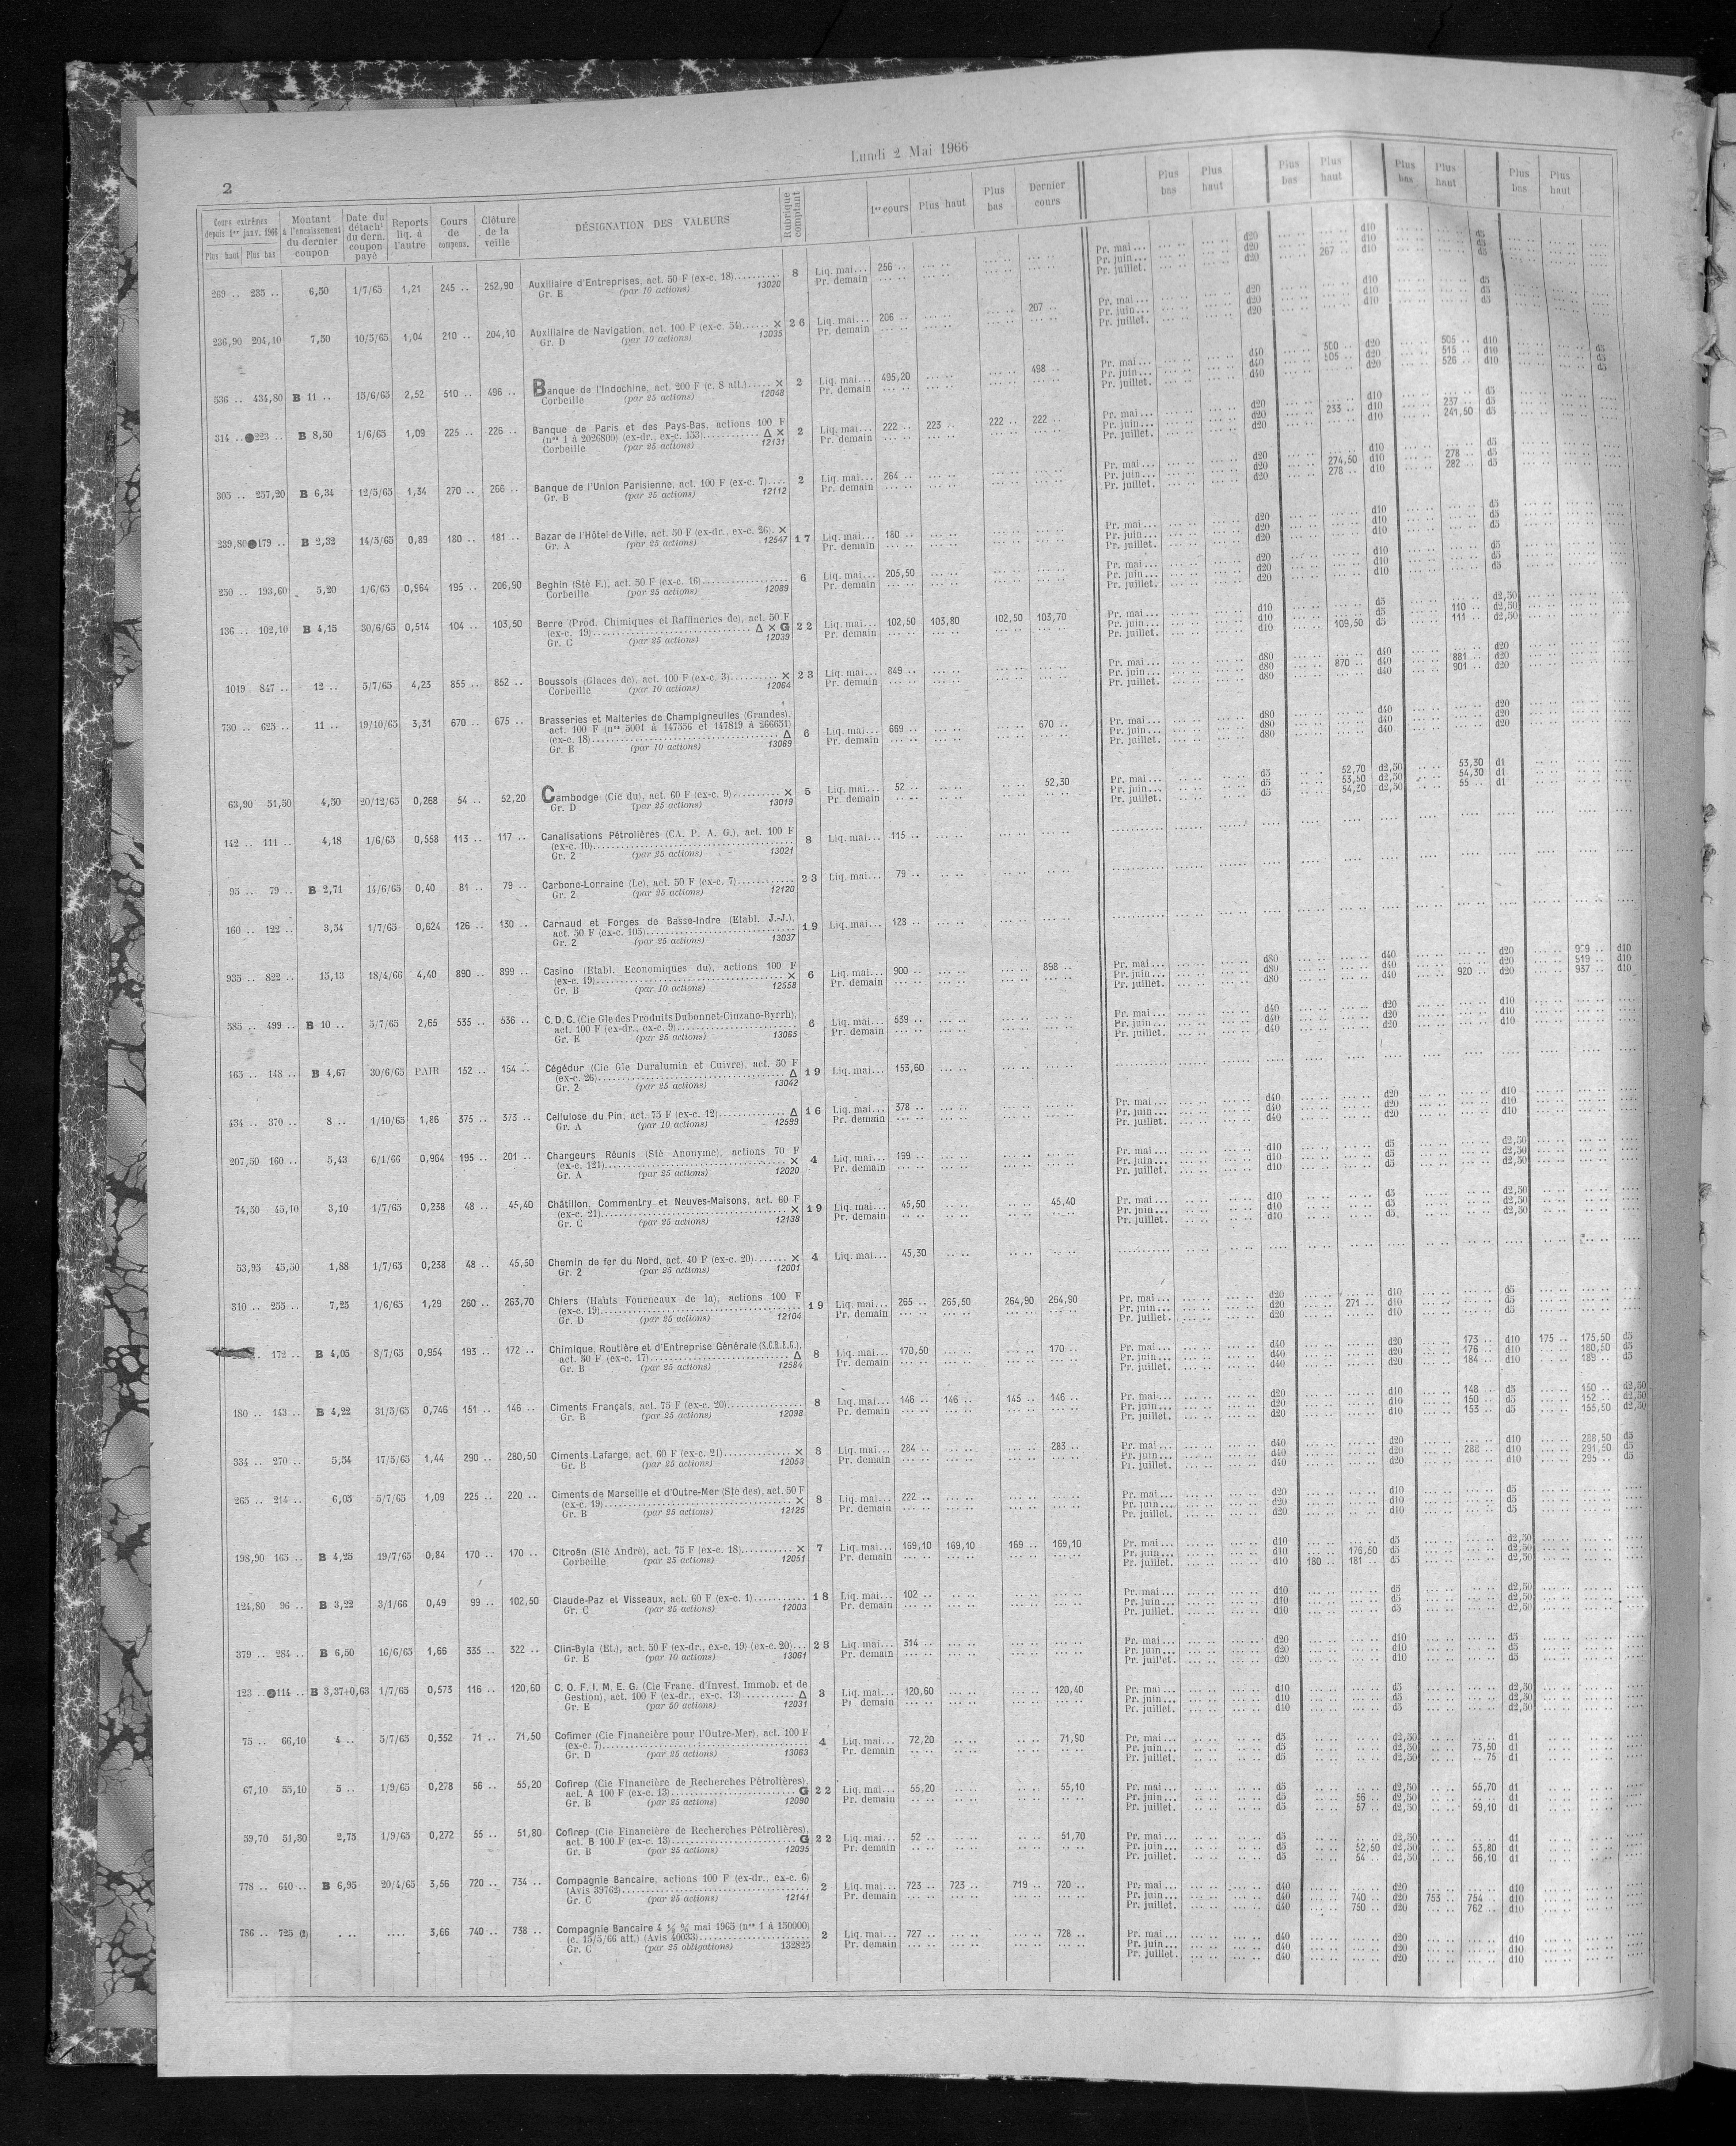 Lundi 2 Mai 1966
2
Cours extrêmes depuis 1er janv. 1966 Plus haut Plus bas | Montant à l'encaissement du dernier coupon | Date du détacht du dern. coupon payé | Reports liq. à l'autre | Cours de compens. | Clôture de la veille | DÉSIGNATION DES VALEURS | Rubrique comptant | 1er cours | Plus haut | Plus bas | Dernier cours | Plus bas | Plus haut | Plus bas | Plus haut | Plus bas | Plus haut | Plus bas | Plus haut
269 .. 235 .. 6,50 1/7/65 1,21 245 .. 252,90 Auxiliaire d'Entreprises, act. 50 F (ex-c. 18) 8 Liq. mai... 256 .. Pr. mai ... d20 d10 d5
Gr. E (par 10 actions) 13020 Pr. demain Pr. juin ... d20 d10 d5
Pr. juillet. d20 267 .. d10 d5
236,90 204,10 7,50 10/5/65 1,04 210 .. 204,10 Auxiliaire de Navigation, act. 100 F (ex-c. 54) × 26 Liq. mai... 206 .. 207 .. Pr. mai ... d20 d10 d5
Gr. D (par 10 actions) 13035 Pr. demain Pr. juin ... d20 d10 d5
Pr. juillet. d20 d10 d5
536 .. 434,80 B 11 .. 15/6/65 2,52 510 .. 496 .. Banque de l'Indochine, act. 200 F (c. 8 att.) × 2 Liq. mai... 495,20 498 .. Pr. mai ... d40 500 .. d20 505 .. d10 d5
Corbeille (par 25 actions) 12048 Pr. demain Pr. juin ... d40 505 .. d20 515 .. d10 d5
Pr. juillet. d40 d20 526 .. d10 d5
314 .. ●223 .. B 8,50 1/6/65 1,09 225 .. 226 .. Banque de Paris et des Pays-Bas, actions 100 F
(nos 1 à 2026800) (ex-dr., ex-c. 153) Δ × 2 Liq. mai... 222 .. 223 .. 222 .. 222 .. Pr. mai ... d20 d10 d5
Corbeille (par 25 actions) 12131 Pr. demain Pr. juin ... d20 233 .. d10 237 .. d5
Pr. juillet. d20 241,50 d5
305 .. 257,20 B 6,34 12/5/65 1,34 270 .. 266 .. Banque de l'Union Parisienne, act. 100 F (ex-c. 7) 2 Liq. mai... 264 .. Pr. mai ... d20 d10 d5
Gr. B (par 25 actions) 12112 Pr. demain Pr. juin ... d20 274,50 d10 278 .. d5
Pr. juillet. d20 278 .. d10 282 .. d5
239,80 ●179 .. B 2,32 14/5/65 0,89 180 .. 181 .. Bazar de l'Hôtel de Ville, act. 50 F (ex-dr., ex-c. 26). × 17 Liq. mai... 180 .. Pr. mai ... d20 d10 d5
Gr. A (par 25 actions) 12547 Pr. demain Pr. juin ... d20 d10 d5
Pr. juillet. d20 d10 d5
250 .. 193,60 5,20 1/6/65 0,964 195 .. 206,90 Beghin (Sté F.), act. 50 F (ex-c. 16) 6 Liq. mai... 205,50 Pr. mai ... d20 d10 d5
Corbeille (par 25 actions) 12089 Pr. demain Pr. juin ... d20 d10 d5
Pr. juillet. d20 d10 d5
136 .. 102,10 B 4,15 30/6/65 0,514 104 .. 103,50 Berre (Prod. Chimiques et Raffineries de), act. 50 F
(ex-c. 19) Δ × G 22 Liq. mai... 102,50 103,80 102,50 103,70 Pr. mai ... d10 d5 d2,50
Gr. C (par 25 actions) 12039 Pr. demain Pr. juin ... d10 d5 110 .. d2,50
Pr. juillet. d10 109,50 d5 111 .. d2,50
1019 . 847 .. 12 .. 5/7/65 4,23 855 .. 852 .. Boussois (Glaces de), act. 100 F (ex-c. 3) × 23 Liq. mai... 849 .. Pr. mai ... d80 d40 d20
Corbeille (par 10 actions) 12064 Pr. demain Pr. juin ... d80 870 .. d40 881 .. d20
Pr. juillet. d80 d40 901 .. d20
730 .. 625 .. 11 .. 19/10/65 3,31 670 .. 675 .. Brasseries et Malteries de Champigneulles (Grandes),
act. 100 F (nos 5001 à 147556 et 147819 à 266651)
(ex-c. 18) Δ 6 Liq. mai... 669 .. 670 .. Pr. mai ... d80 d40 d20
Gr. E (par 10 actions) 13069 Pr. demain Pr. juin ... d80 d40 d20
Pr. juillet. d80 d40 d20
63,90 51,50 4,50 20/12/65 0,268 54 .. 52,20 Cambodge (Cie du), act. 60 F (ex-c. 9) × 5 Liq. mai... 52 .. 52,30 Pr. mai ... d5 52,70 d2,50 53,30 d1
Gr. D (par 25 actions) 13019 Pr. demain Pr. juin ... d5 53,50 d2,50 54,30 d1
Pr. juillet. d5 54,20 d2,50 55 .. d1
142 .. 111 .. 4,18 1/6/65 0,558 113 .. 117 .. Canalisations Pétrolières (CA. P. A. G.), act. 100 F
(ex-c. 10) 8 Liq. mai... 115 ..
Gr. 2 (par 25 actions) 13021
95 .. 79 .. B 2,71 14/6/65 0,40 81 .. 79 .. Carbone-Lorraine (Le), act. 50 F (ex-c. 7) 23 Liq. mai... 79 ..
Gr. 2 (par 25 actions) 12120
160 .. 122 .. 3,54 1/7/65 0,624 126 .. 130 .. Carnaud et Forges de Basse-Indre (Etabl. J.-J.),
act. 50 F (ex-c. 105) 19 Liq. mai... 128 ..
Gr. 2 (par 25 actions) 13037
935 .. 822 .. 15,13 18/4/66 4,40 890 .. 899 .. Casino (Etabl. Economiques du), actions 100 F
(ex-c. 19) × 6 Liq. mai... 900 .. 898 .. Pr. mai ... d80 d40 d20 d10
Gr. B (par 10 actions) 12558 Pr. demain Pr. juin ... d80 d40 d20 919 .. d10
Pr. juillet. d80 d40 920 .. d20 937 .. d10
585 .. 499 .. B 10 .. 5/7/65 2,65 535 .. 536 .. C.D.C. (Cie Gle des Produits Dubonnet-Cinzano-Byrrh),
act. 100 F (ex-dr., ex-c. 9) 6 Liq. mai... 539 .. Pr. mai ... d40 d20 d10
Gr. E (par 25 actions) 13065 Pr. demain Pr. juin ... d40 d20 d10
Pr. juillet. d40 d20 d10
165 .. 148 .. B 4,67 30/6/65 PAIR 152 .. 154 .. Cégédur (Cie Gle Duralumin et Cuivre), act. 50 F
(ex-c. 26) Δ 19 Liq. mai... 153,60
Gr. 2 (par 25 actions) 13042
434 .. 370 .. 8 .. 1/10/65 1,86 375 .. 373 .. Cellulose du Pin, act. 75 F (ex-c. 12) Δ 16 Liq. mai... 378 .. Pr. mai ... d40 d20 d10
Gr. A (par 10 actions) 12599 Pr. demain Pr. juin ... d40 d20 d10
Pr. juillet. d40 d20 d10
207,50 160 .. 5,43 6/1/66 0,964 195 .. 201 .. Chargeurs Réunis (Sté Anonyme), actions 70 F
(ex-c. 121) × 4 Liq. mai... 199 .. Pr. mai ... d10 d5 d2,50
Gr. A (par 25 actions) 12020 Pr. demain Pr. juin ... d10 d5 d2,50
Pr. juillet. d10 d5 d2,50
74,50 45,10 3,10 1/7/65 0,238 48 .. 45,40 Châtillon, Commentry et Neuves-Maisons, act. 60 F
(ex-c. 21) × 19 Liq. mai... 45,50 45,40 Pr. mai ... d10 d5 d2,50
Gr. C (par 25 actions) 12138 Pr. demain Pr. juin ... d10 d5 d2,50
Pr. juillet. d10 d5 d2,50
53,95 45,50 1,88 1/7/65 0,238 48 .. 45,50 Chemin de fer du Nord, act. 40 F (ex-c. 20) × 4 Liq. mai... 45,30
Gr. 2 (par 25 actions) 12001
310 .. 255 .. 7,25 1/6/65 1,29 260 .. 263,70 Chiers (Hauts Fourneaux de la), actions 100 F
(ex-c. 19) 19 Liq. mai... 265 .. 265,50 264,90 264,90 Pr. mai ... d20 d10 d5
Gr. D (par 25 actions) 12104 Pr. demain Pr. juin ... d20 271 .. d10 d5
Pr. juillet. d20 d10 d5
172 .. B 4,05 8/7/65 0,954 193 .. 172 .. Chimique, Routière et d'Entreprise Générale (S.C.R.E.G.),
act. 50 F (ex-c. 17) Δ 8 Liq. mai... 170,50 170 .. Pr. mai ... d40 d20 173 .. d10 175 .. 175,50 d5
Gr. B (par 25 actions) 12584 Pr. demain Pr. juin ... d40 d20 176 .. d10 180,50 d5
Pr. juillet. d40 d20 184 .. d10 189 .. d5
180 .. 143 .. B 4,22 31/5/65 0,746 151 .. 146 .. Ciments Français, act. 75 F (ex-c. 20) 8 Liq. mai... 146 .. 146 .. 145 .. 146 .. Pr. mai ... d20 d10 148 .. d5 150 .. d2,50
Gr. B (par 25 actions) 12098 Pr. demain Pr. juin ... d20 d10 150 .. d5 152 .. d2,50
Pr. juillet. d20 d10 153 .. d5 155,50 d2,50
334 .. 270 .. 5,54 17/5/65 1,44 290 .. 280,50 Ciments Lafarge, act. 60 F (ex-c. 21) × 8 Liq. mai... 284 .. 283 .. Pr. mai ... d40 d20 d10 288,50 d5
Gr. B (par 25 actions) 12053 Pr. demain Pr. juin ... d40 d20 288 .. d10 291,50 d5
Pr. juillet. d40 d20 d10 295 .. d5
265 .. 214 .. 6,05 5/7/65 1,09 225 .. 220 .. Ciments de Marseille et d'Outre-Mer (Sté des), act. 50 F
(ex-c. 19) × 8 Liq. mai... 222 .. Pr. mai ... d20 d10 d5
Gr. B (par 25 actions) 12125 Pr. demain Pr. juin ... d20 d10 d5
Pr. juillet. d20 d10 d5
198,90 165 .. B 4,25 19/7/65 0,84 170 .. 170 .. Citroën (Sté André), act. 75 F (ex-c. 18) × 7 Liq. mai... 169,10 169,10 169 .. 169,10 Pr. mai ... d10 d5 d2,50
Corbeille (par 25 actions) 12051 Pr. demain Pr. juin ... d10 176,50 d5 d2,50
Pr. juillet. d10 180 .. 181 .. d5 d2,50
124,80 96 .. B 3,22 3/1/66 0,49 99 .. 102,50 Claude-Paz et Visseaux, act. 60 F (ex-c. 1) 18 Liq. mai... 102 .. Pr. mai ... d10 d5 d2,50
Gr. C (par 25 actions) 12003 Pr. demain Pr. juin ... d10 d5 d2,50
Pr. juillet. d10 d5 d2,50
379 .. 284 .. B 6,50 16/6/65 1,66 335 .. 322 .. Clin-Byla (Et.), act. 50 F (ex-dr., ex-c. 19) (ex-c. 20) 23 Liq. mai... 314 .. Pr. mai ... d20 d10 d5
Gr. E (par 10 actions) 13061 Pr. demain Pr. juin ... d20 d10 d5
Pr. juillet. d20 d10 d5
123 .. ●114 .. B 3,37+0,63 1/7/65 0,573 116 .. 120,60 C. O. F. I. M. E. G. (Cie Franç. d'Invest. Immob. et de
Gestion), act. 100 F (ex-dr., ex-c. 13) Δ 3 Liq. mai... 120,60 120,40 Pr. mai ... d10 d5 d2,50
Gr. E (par 50 actions) 12031 Pr demain Pr. juin ... d10 d5 d2,50
Pr. juillet. d10 d5 d2,50
75 .. 66,10 4 .. 5/7/65 0,352 71 .. 71,50 Cofimer (Cie Financière pour l'Outre-Mer), act. 100 F
(ex-c. 7) 4 Liq. mai... 72,20 71,90 Pr. mai ... d5 d2,50 d1
Gr. D (par 25 actions) 13063 Pr. demain Pr. juin ... d5 d2,50 73,50 d1
Pr. juillet. d5 d2,50 75 d1
67,10 55,10 5 .. 1/9/65 0,278 56 .. 55,20 Cofirep (Cie Financière de Recherches Pétrolières),
act. A 100 F (ex-c. 13) G 22 Liq. mai... 55,20 55,10 Pr. mai ... d5 d2,50 55,70 d1
Gr. B (par 25 actions) 12090 Pr. demain Pr. juin ... d5 56 .. d2,50 d1
Pr. juillet. d5 57 .. d2,50 59,10 d1
59,70 51,30 2,75 1/9/65 0,272 55 .. 51,80 Cofirep (Cie Financière de Recherches Pétrolières),
act. B 100 F (ex-c. 13) G 22 Liq. mai... 52 .. 51,70 Pr. mai ... d5 d2,50 d1
Gr. B (par 25 actions) 12095 Pr. demain Pr. juin ... d5 52,50 d2,50 53,80 d1
Pr. juillet. d5 54 .. d2,50 56,10 d1
778 .. 640 .. B 6,95 20/4/65 3,56 720 .. 734 .. Compagnie Bancaire, actions 100 F (ex-dr., ex-c. 6)
(Avis 39762) 2 Liq. mai... 723 .. 723 .. 719 .. 720 .. Pr. mai ... d40 d20 d10
Gr. C (par 25 actions) 12141 Pr. demain Pr. juin ... d40 740 .. d20 753 .. 754 .. d10
Pr. juillet. d40 750 .. d20 762 .. d10
786 .. 725 (2) 3,66 740 .. 738 .. Compagnie Bancaire 4 ½ % mai 1965 (nos 1 à 150000)
(c. 15/5/66 att.) (Avis 40033) 2 Liq. mai... 727 .. 728 .. Pr. mai ... d40 d20 d10
Gr. C (par 25 obligations) 132825 Pr. demain Pr. juin ... d40 d20 d10
Pr. juillet. d40 d20 d10